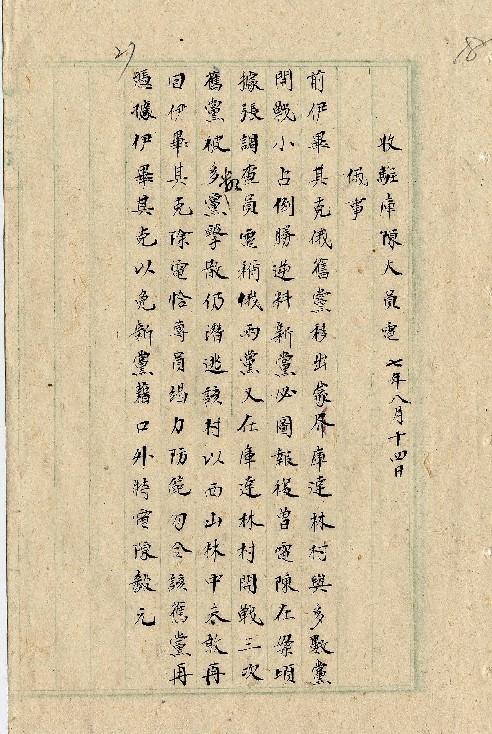 收駐庫陳大員電 七年八月十四日
俄事
前伊畢其克俄舊黨移出蒙屬庫達林村與多數黨
開戰小占倒勝逆料新黨必圖報復曾電陳在案頃
據張調查員電稱俄兩黨又在庫達林村開戰三次
舊黨被多數黨擊散仍潛逃該村以西山林中未敢再
回伊畢其克除電恰專員竭力防範勿令該舊黨再
憑據伊畢其克以免新黨藉口外特電陳毅元